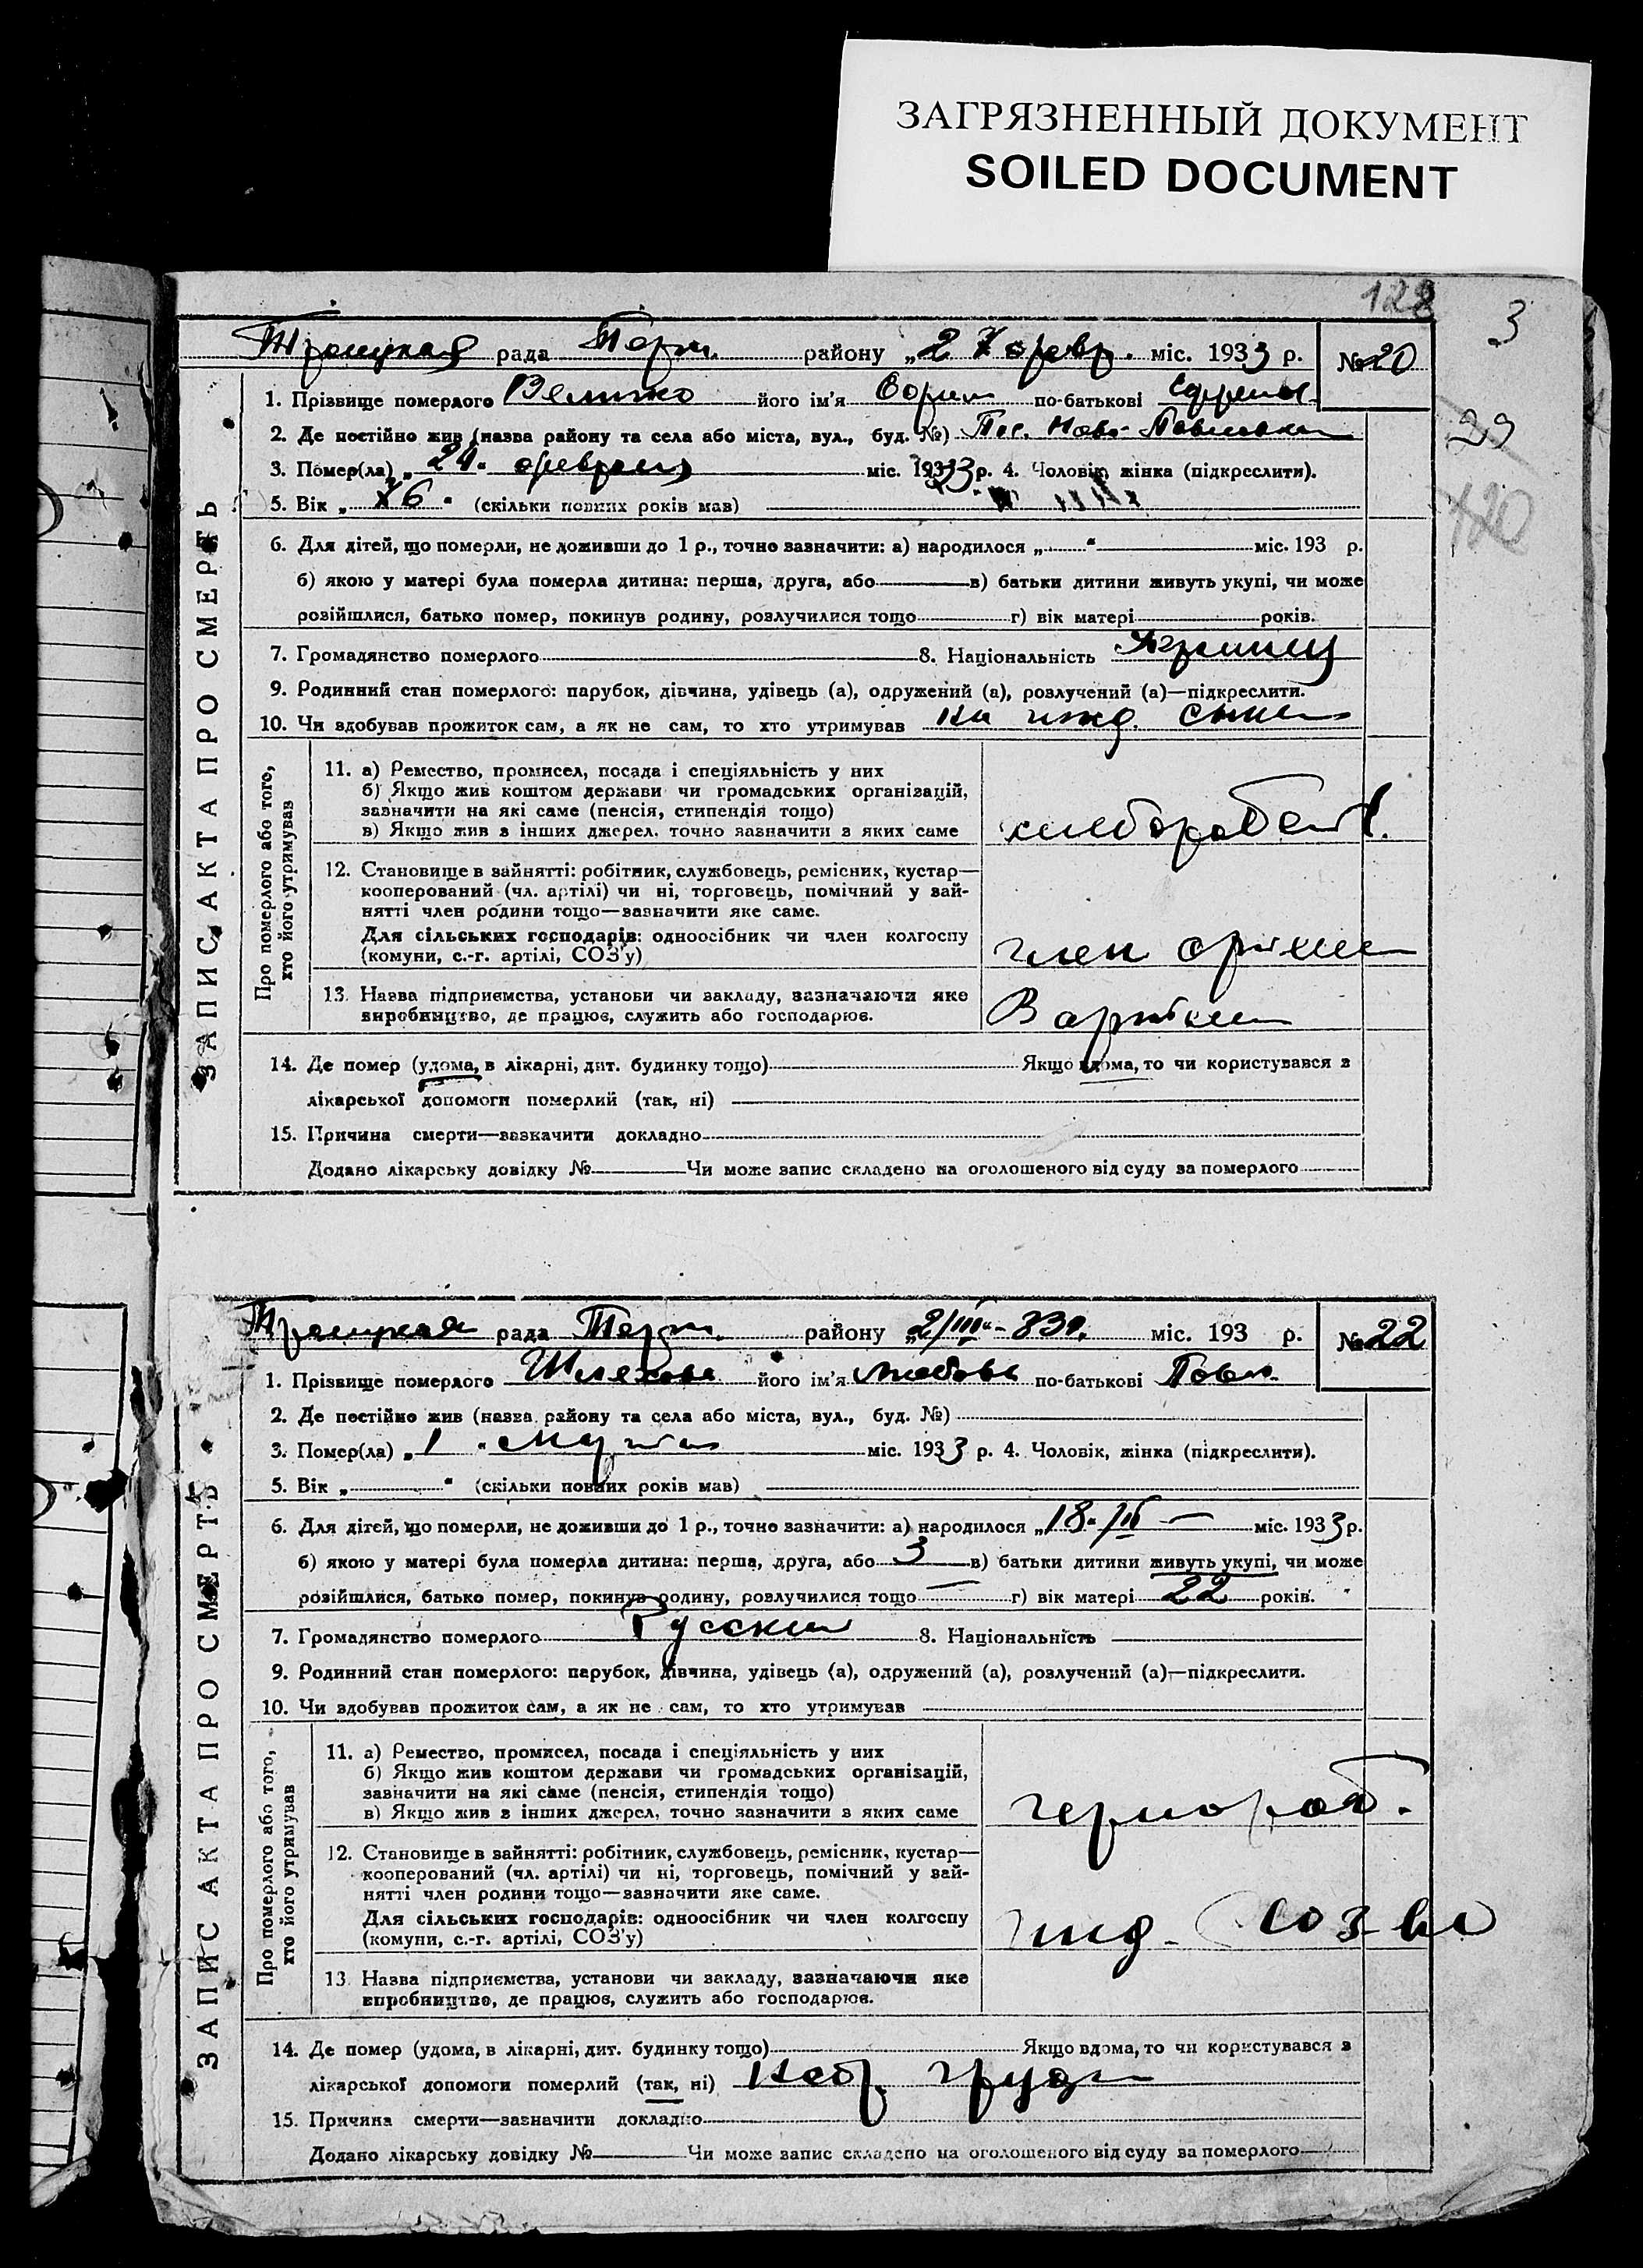 ЗАГРЯЗНЕННЫЙ ДОКУМЕНТ
SOILED DOCUMENT
128
3
рада района „2 7 февр. міс. 1933 р. № 20
29
120
ЗАПИС АКТА ПРО СМЕРТЬ
1. Прізвище померлого Величко його ім'я по-батькові
2. Де постійно жив (назва району та села або міста, вул., буд. №) Пос. Ново-Павловка
3. Помер(ла) „ 24 " февраля міс. 1933 р. 4. Чоловік, жінка (підкреслити).
5. Вік „ " (скільки повних років мав)
6. Для дітей, що померли, не доживши до 1 р., точно зазначити: а) народилося „ " міс. 193 р.
б) якою у матері була померла дитина: перша, друга, або в) батьки дитини живуть укупі, чи може
розійшлися, батько помер, покинув родину, розлучилися тощо г) вік матері років.
7. Громадянство померлого 8. Національність
9. Родинний стан померлого: парубок, дівчина, удівець (а), одружений (а), розлучений (а)—підкреслити.
10. Чи здобував прожиток сам, а як не сам, то хто утримував на ижд. сына
Про померлого або того, хто його утримував
11. а) Ремество, промисел, посада і спеціяльність у них
б) Якщо жив коштом держави чи громадських організацій,
зазначити на які саме (пенсія, стипендія тощо)
в) Якщо жив з інших джерел, точно зазначити з яких саме
12. Становище в зайнятті: робітник, службовець, ремісник, кустар—
кооперований (чл. артілі) чи ні, торговець, помічний у зай-
нятті член родини тощо—зазначити яке саме.
Для сільських господарів: одноосібник чи член колгоспу член артели
(комуни, с.-г. артілі, СОЗ'у)
13. Назва підприємства, установи чи закладу, зазначаючи яке
виробництво, де працює, служить або господарює. В артели
14. Де помер (удома, в лікарні, дит. будинку тощо) Якщо вдома, то чи користувався з
лікарської допомоги померлий (так, ні)
15. Причина смерти—зазначити докладно
Додано лікарську довідку № Чи може запис складено на оголошеного від суду за померлого
рада району „2/III - 33 г. міс. 193 р. № 22
ЗАПИС АКТА ПРО СМЕРТЬ
1. Прізвище померлого Шляхова його ім'я Любовь по-батькові Павл.
2. Де постійно жив (назва району та села або міста, вул., буд. №)
3. Помер(ла) „ 1 " марта міс. 1933 р. 4. Чоловік, жінка (підкреслити).
5. Вік „ " (скільки повних років мав)
6. Для дітей, що померли, не доживши до 1 р., точно зазначити: а) народилося „18 " міс. 1933 р.
б) якою у матері була померла дитина: перша, друга, або 3 в) батьки дитини живуть укупі, чи може
розійшлися, батько помер, покинув родину, розлучилися тощо — г) вік матері 22 років.
7. Громадянство померлого Русские 8. Національність
9. Родинний стан померлого: парубок, дівчина, удівець (а), одружений (а), розлучений (а)—підкреслити.
10. Чи здобував прожиток сам, а як не сам, то хто утримував
Про померлого або того, хто його утримував
11. а) Ремество, промисел, посада і спеціяльність у них
б) Якщо жив коштом держави чи громадських організацій,
зазначити на які саме (пенсія, стипендія тощо)
в) Якщо жив з інших джерел, точно зазначити з яких саме чернораб.
12. Становище в зайнятті: робітник, службовець, ремісник, кустар—
кооперований (чл. артілі) чи ні, торговець, помічний у зай-
нятті член родини тощо—зазначити яке саме.
Для сільських господарів: одноосібник чи член колгоспу
(комуни, с.-г. артілі, СОЗ'у)
13. Назва підприємства, установи чи закладу, зазначаючи яке
виробництво, де працює, служить або господарює.
14. Де помер (удома, в лікарні, дит. будинку тощо) Якщо вдома, то чи користувався з
лікарської допомоги померлий (так, ні)
15. Причина смерти—зазначити докладно
Додано лікарську довідку № Чи може запис складено на оголошеного від суду за померлого